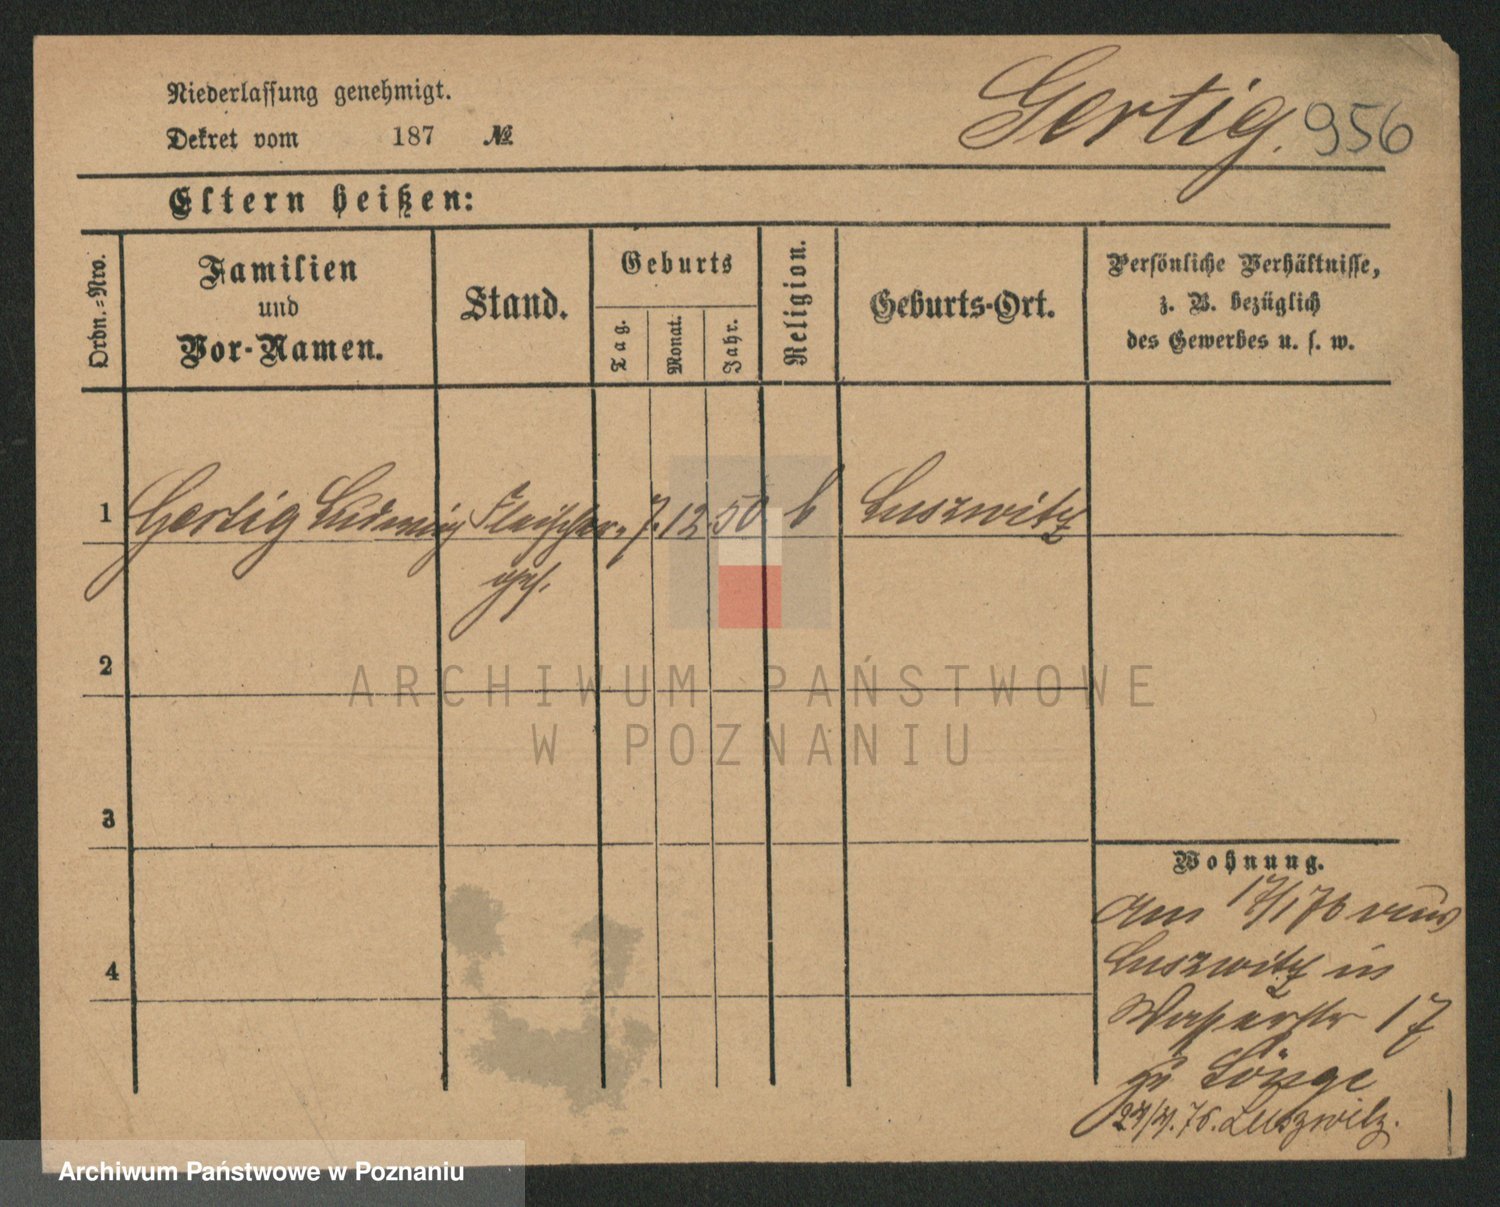 Niederlassung genehmigt.
Dekret vom 187 №
Gertig. 956
Eltern heißen:
Ordn.-Nro.
Familien
und
Vor-Namen.
Stand.
Geburts
Tag.
Monat.
Jahr.
Religion.
Geburts-Ort.
Persönliche Verhältnisse,
z. B. bezüglich
des Gewerbes u. s. w.
1 Gertig Ludwig Fleischer- 7. 12. 50 k Luszwitz
ges.
2
3
4
Wohnung.
Am 17/1 76 aus
Luszwitz in
Wasserstr 17
zu
76. Luszwitz.
ARCHIWUM PAŃSTWOWE
W POZNANIU
Archiwum Państwowe w Poznaniu